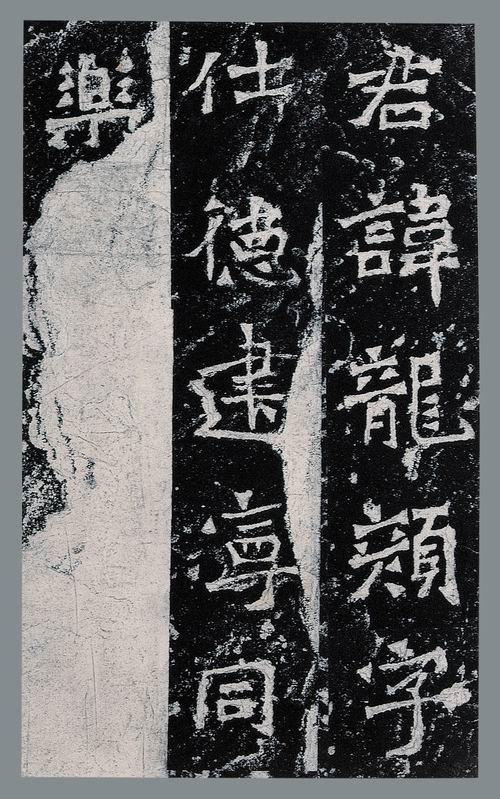 君諱龍顏字
仕德建寧同
樂